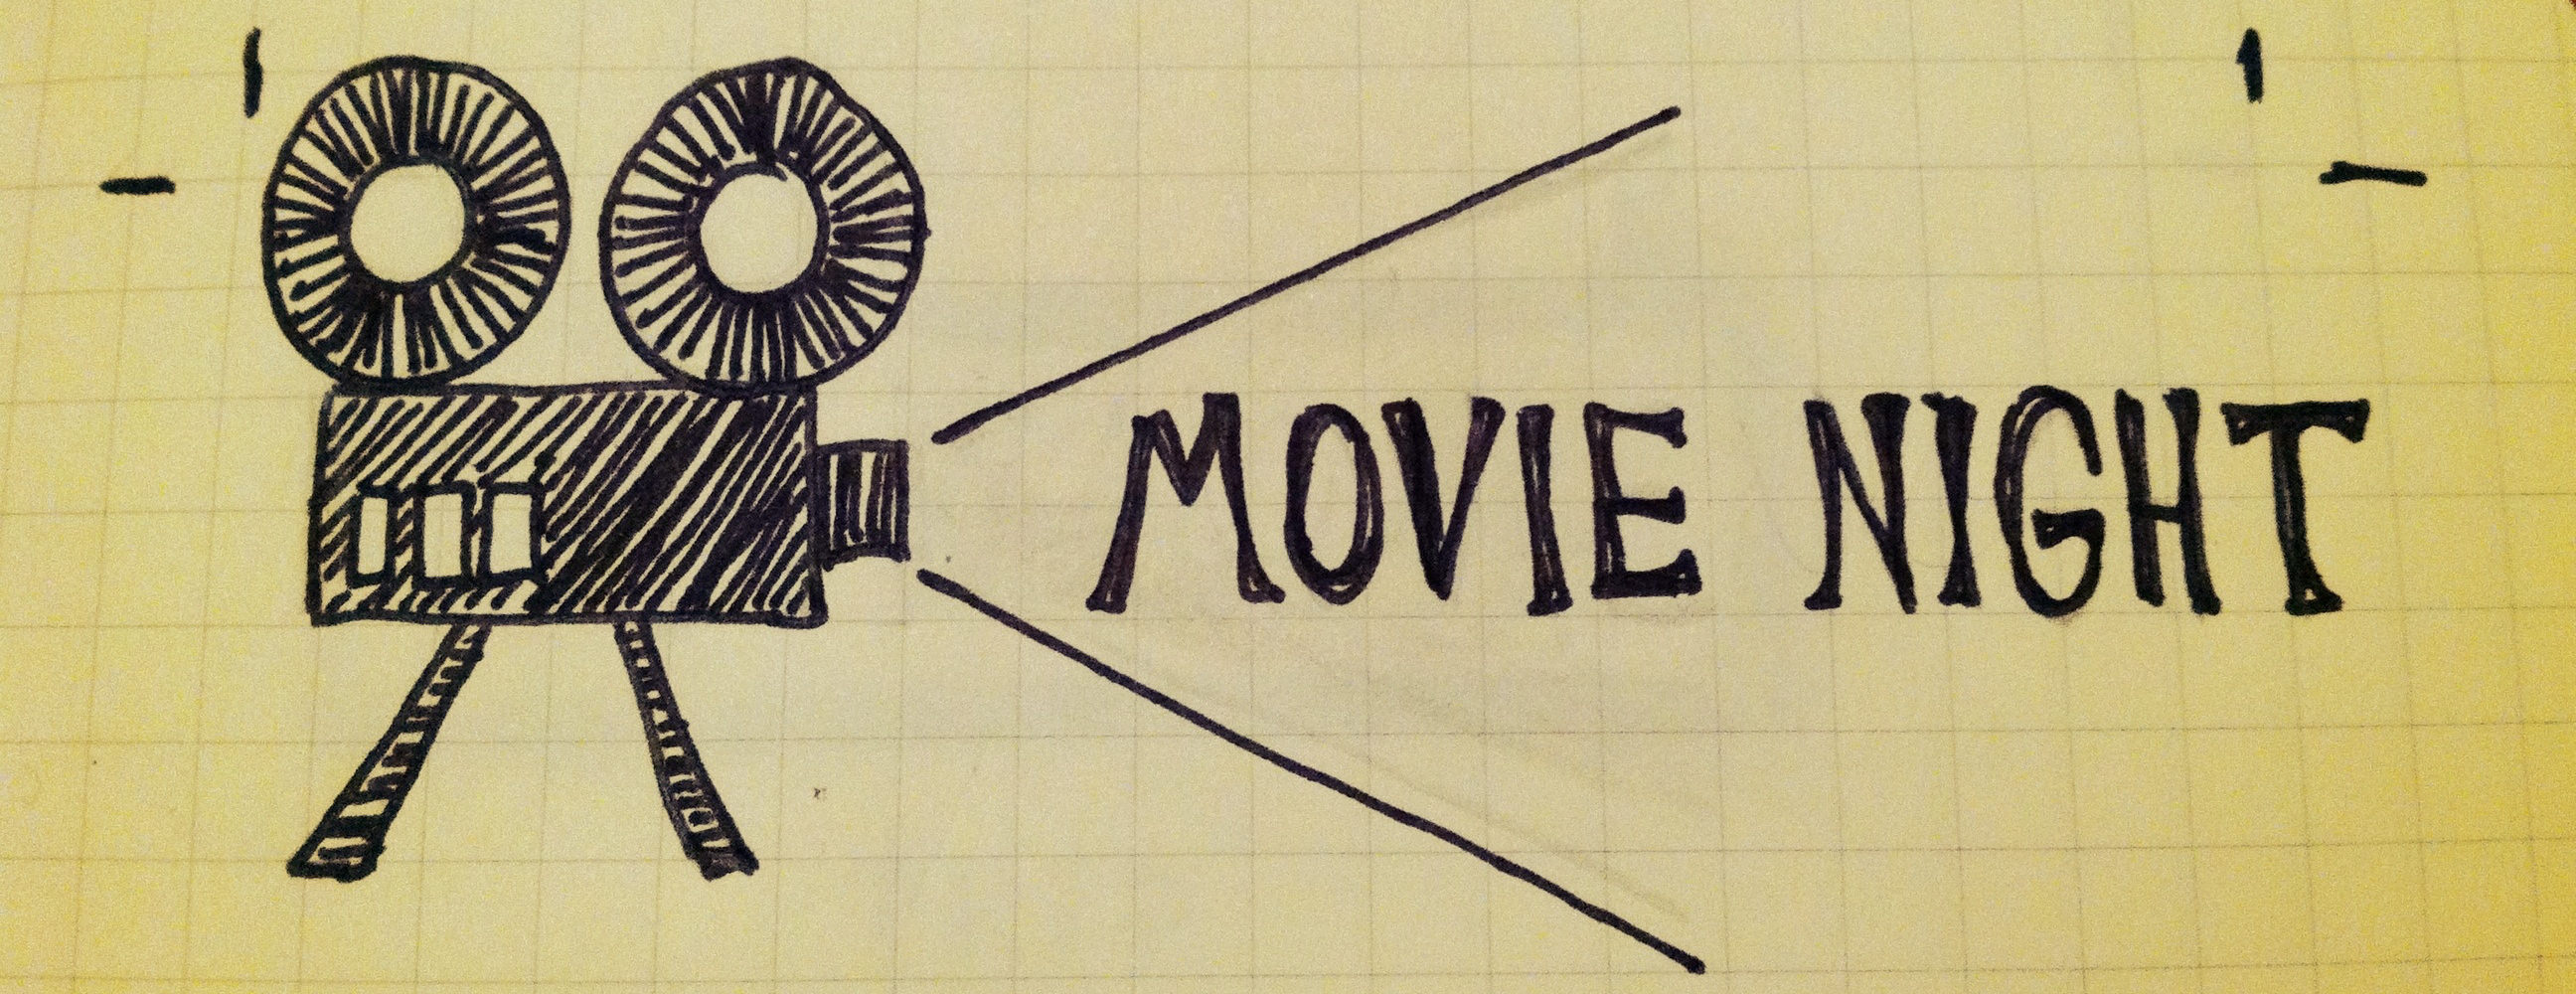 MOVIE NIGHT